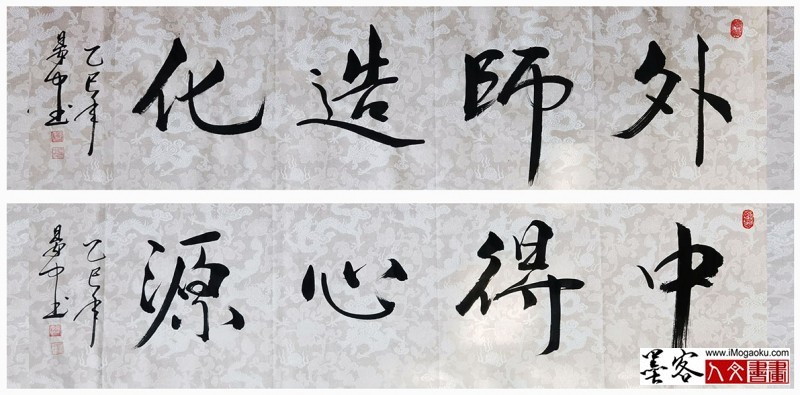 外師造化
乙巳年
易中书
中得心源
乙巳年
易中书
墨客
www.iMogaoku.com
人文書畫